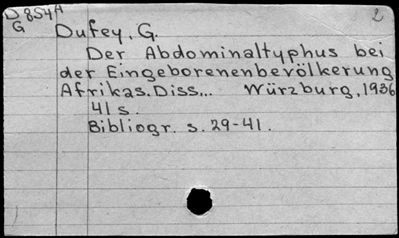 D854A 2
G Dufey, G.
Der Abdominaltyphus bei
der Eingeborenenbevölkerung
Afrikas. Diss... Würzburg, 1936
41 s.
Bibliogr. s. 29-41.